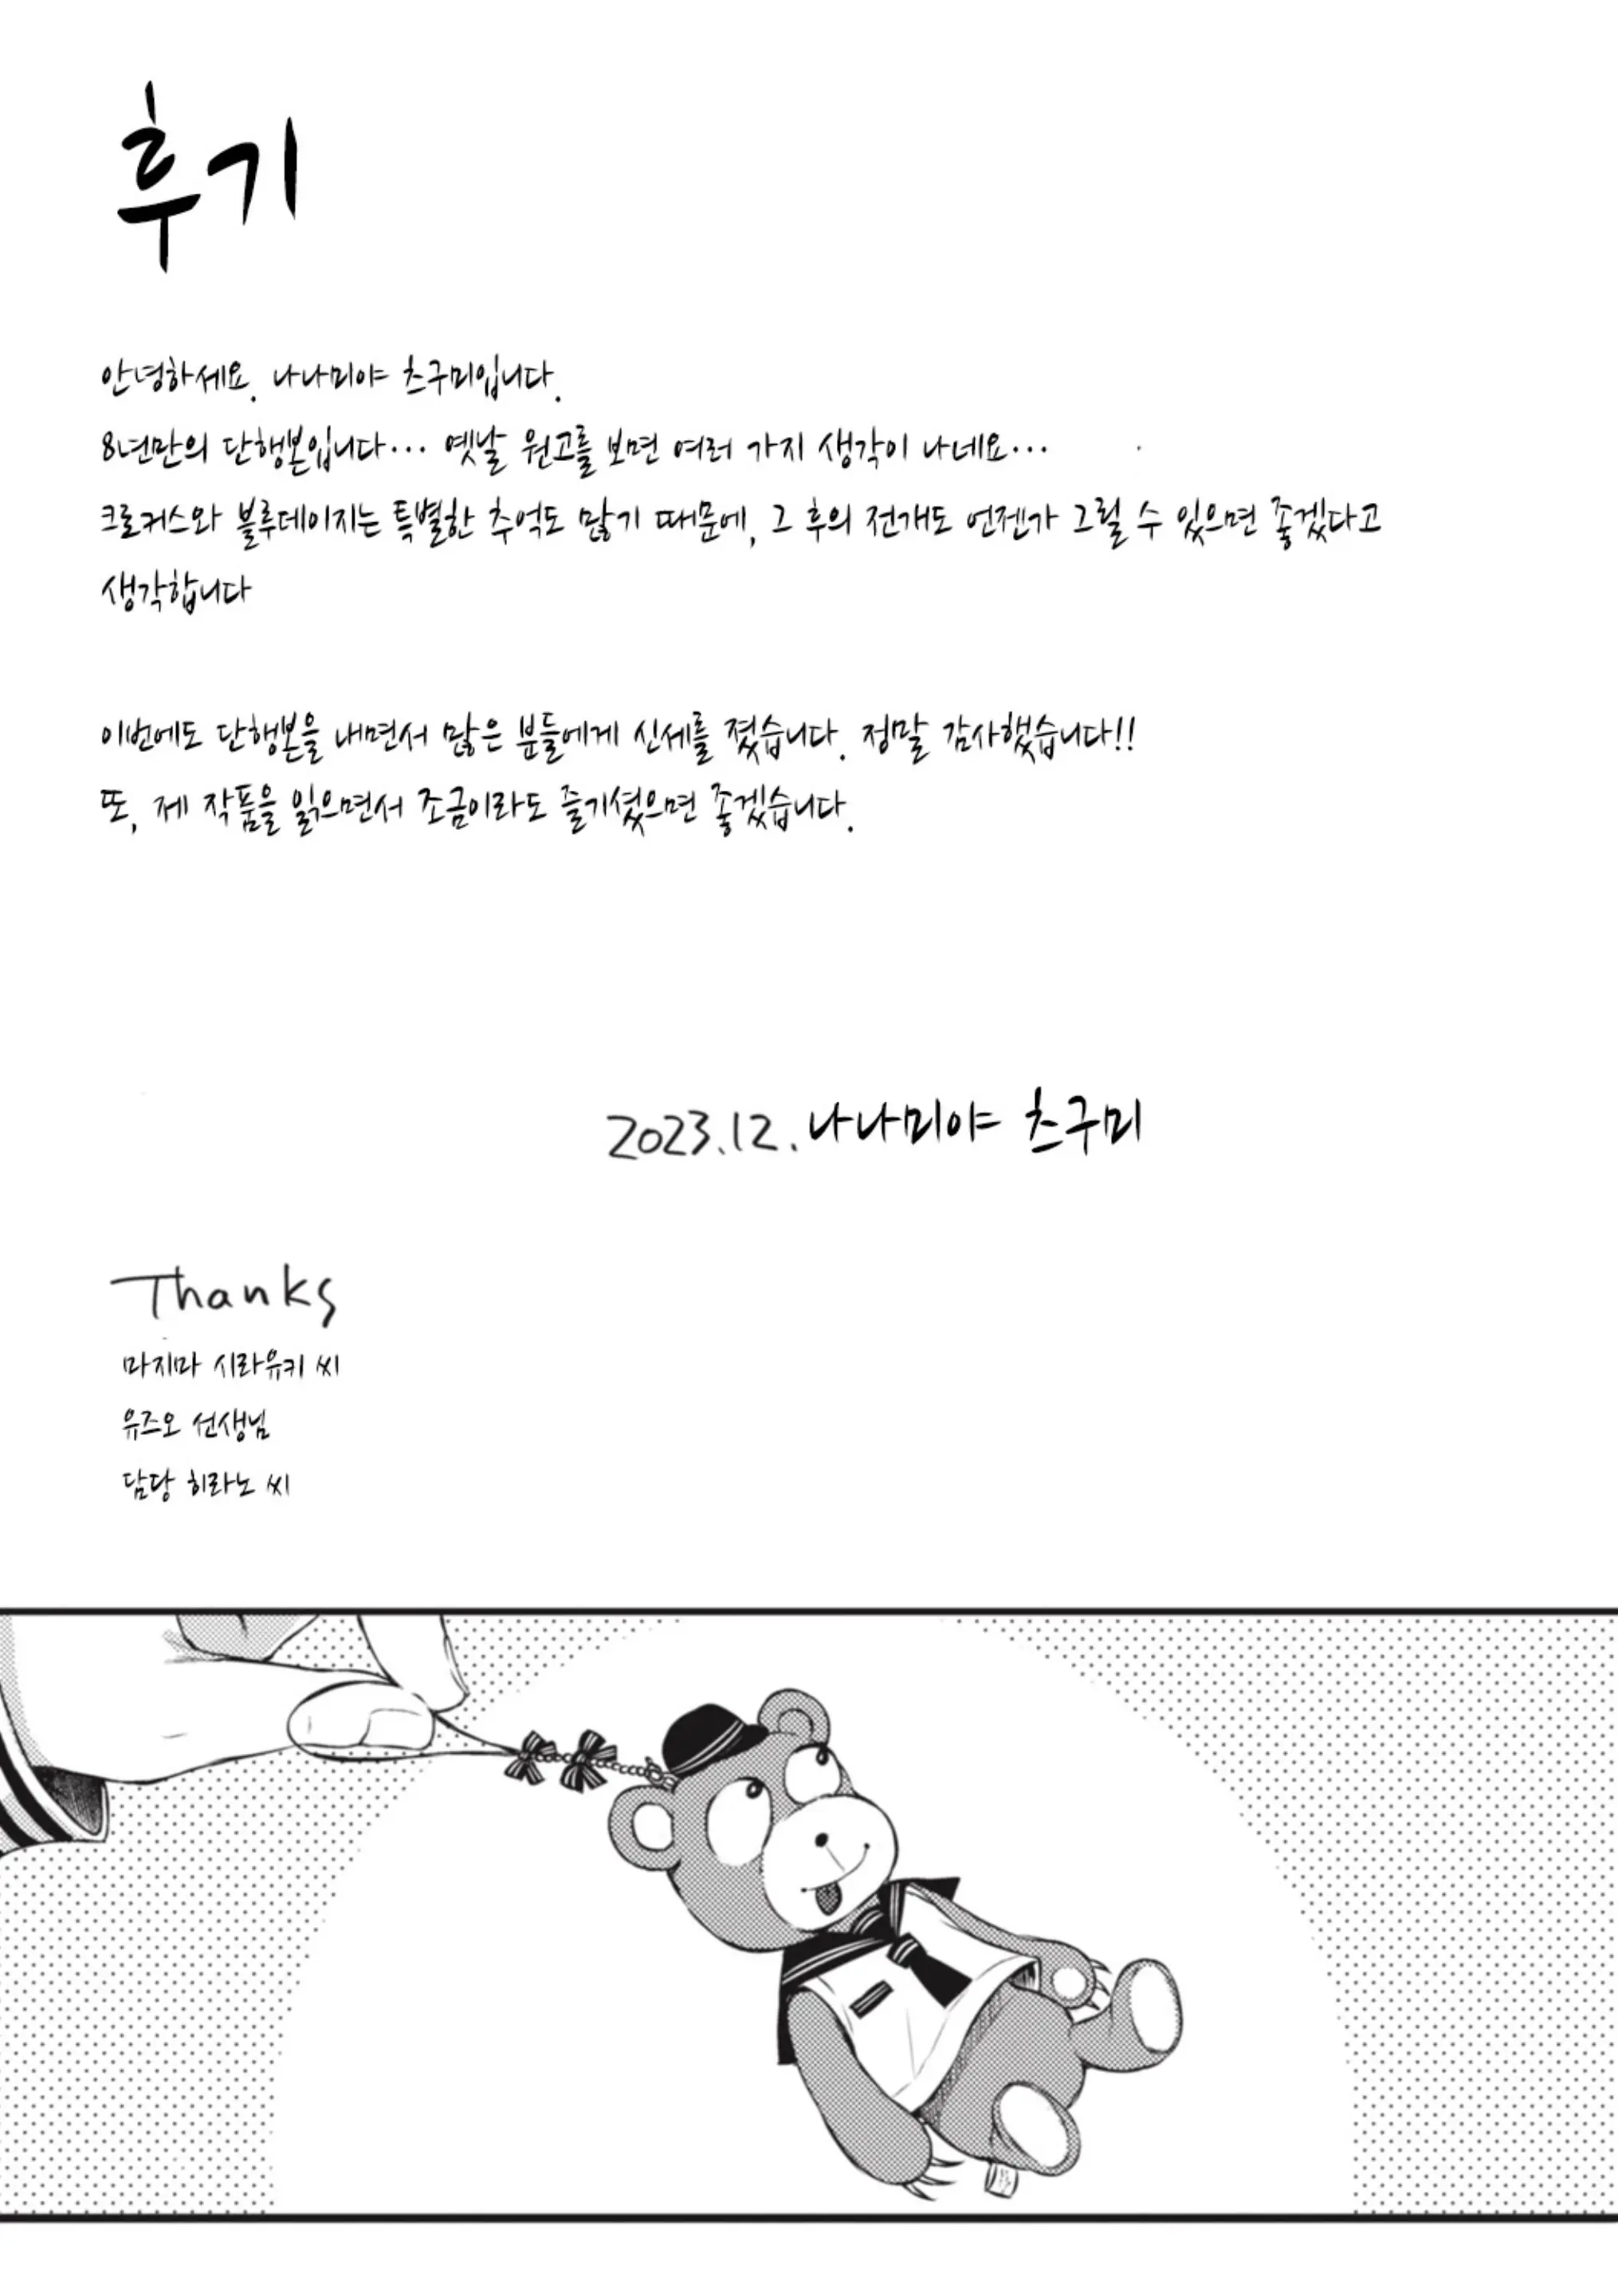 후기
안녕하세요. 나나미야 츠구미입니다.
8년만의 단행본입니다... 옛날 원고를 보면 여러 가지 생각이 나네요...
크로커스와 블루데이지는 특별한 추억도 많기 때문에, 그 후의 전개도 언젠가 그릴 수 있으면 좋겠다고
생각합니다
이번에도 단행본을 내면서 많은 분들에게 신세를 졌습니다. 정말 감사했습니다!!
또, 제 작품을 읽으면서 조금이라도 즐기셨으면 좋겠습니다.
2023.12. 나나미야 츠구미
Thanks
마지마 시라유키 씨
유즈오 선생님
담당 히라노 씨